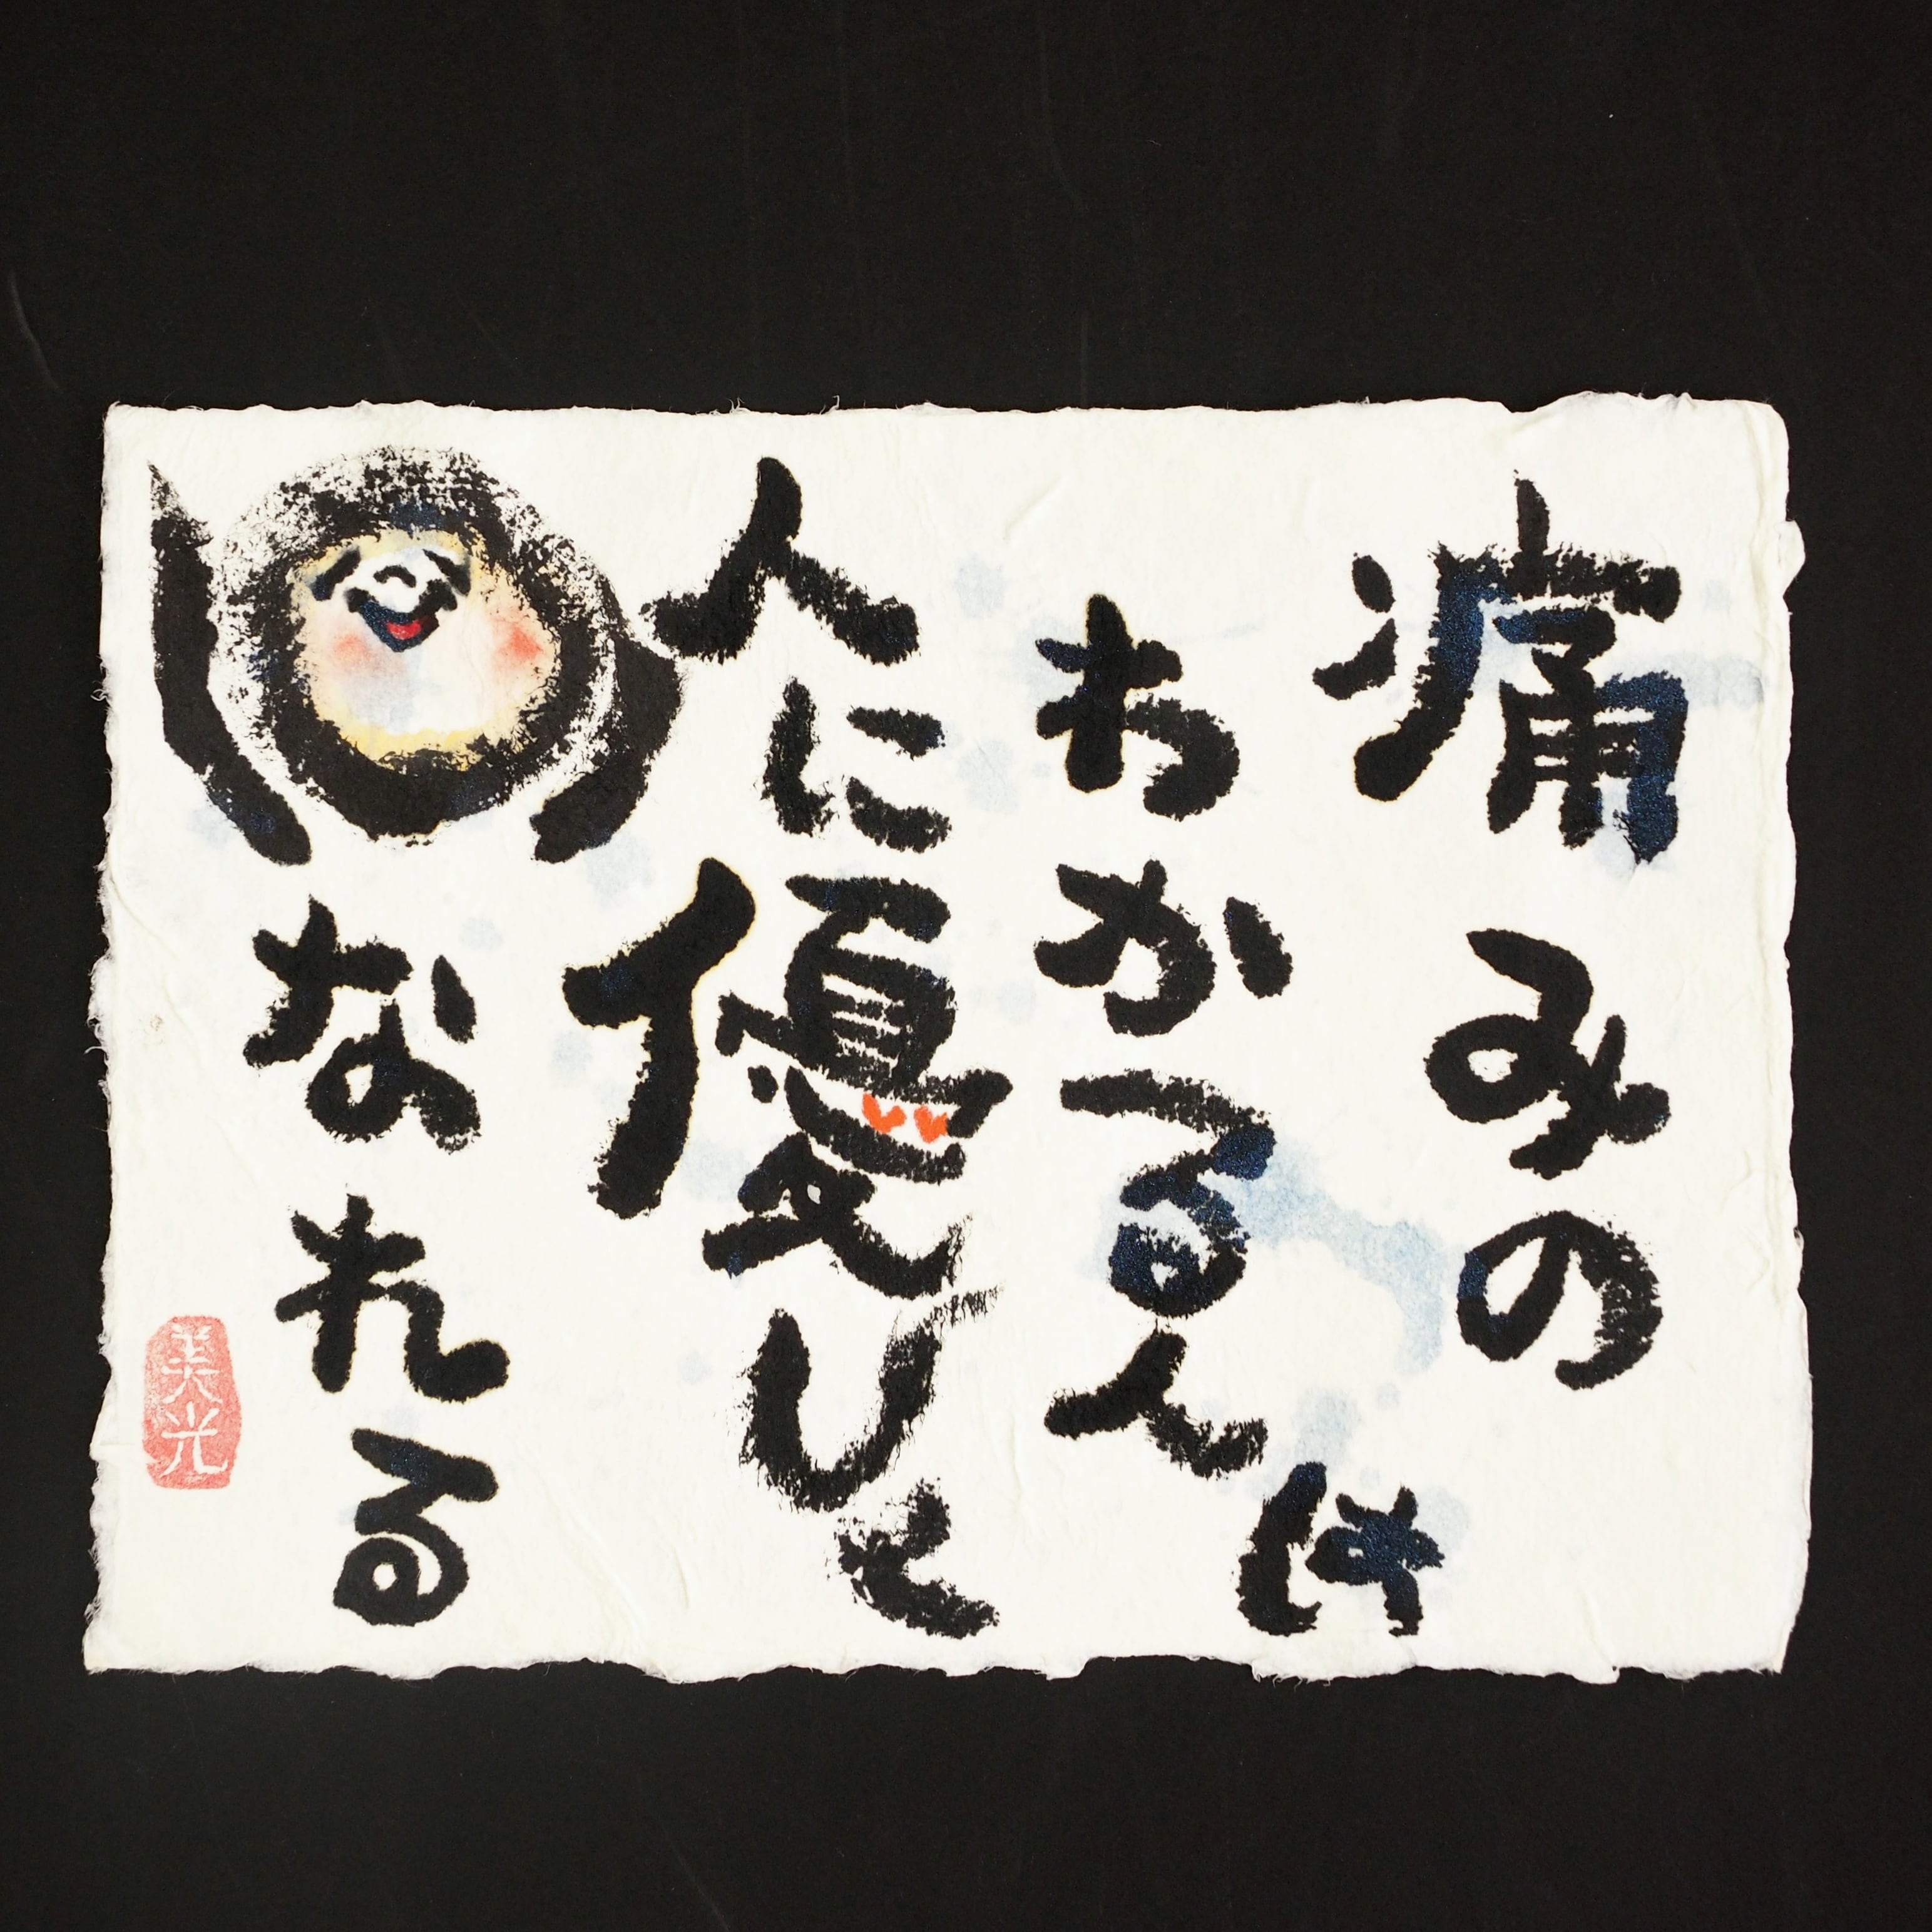 痛みの
わかる人は
人に優しく
なれる
美光